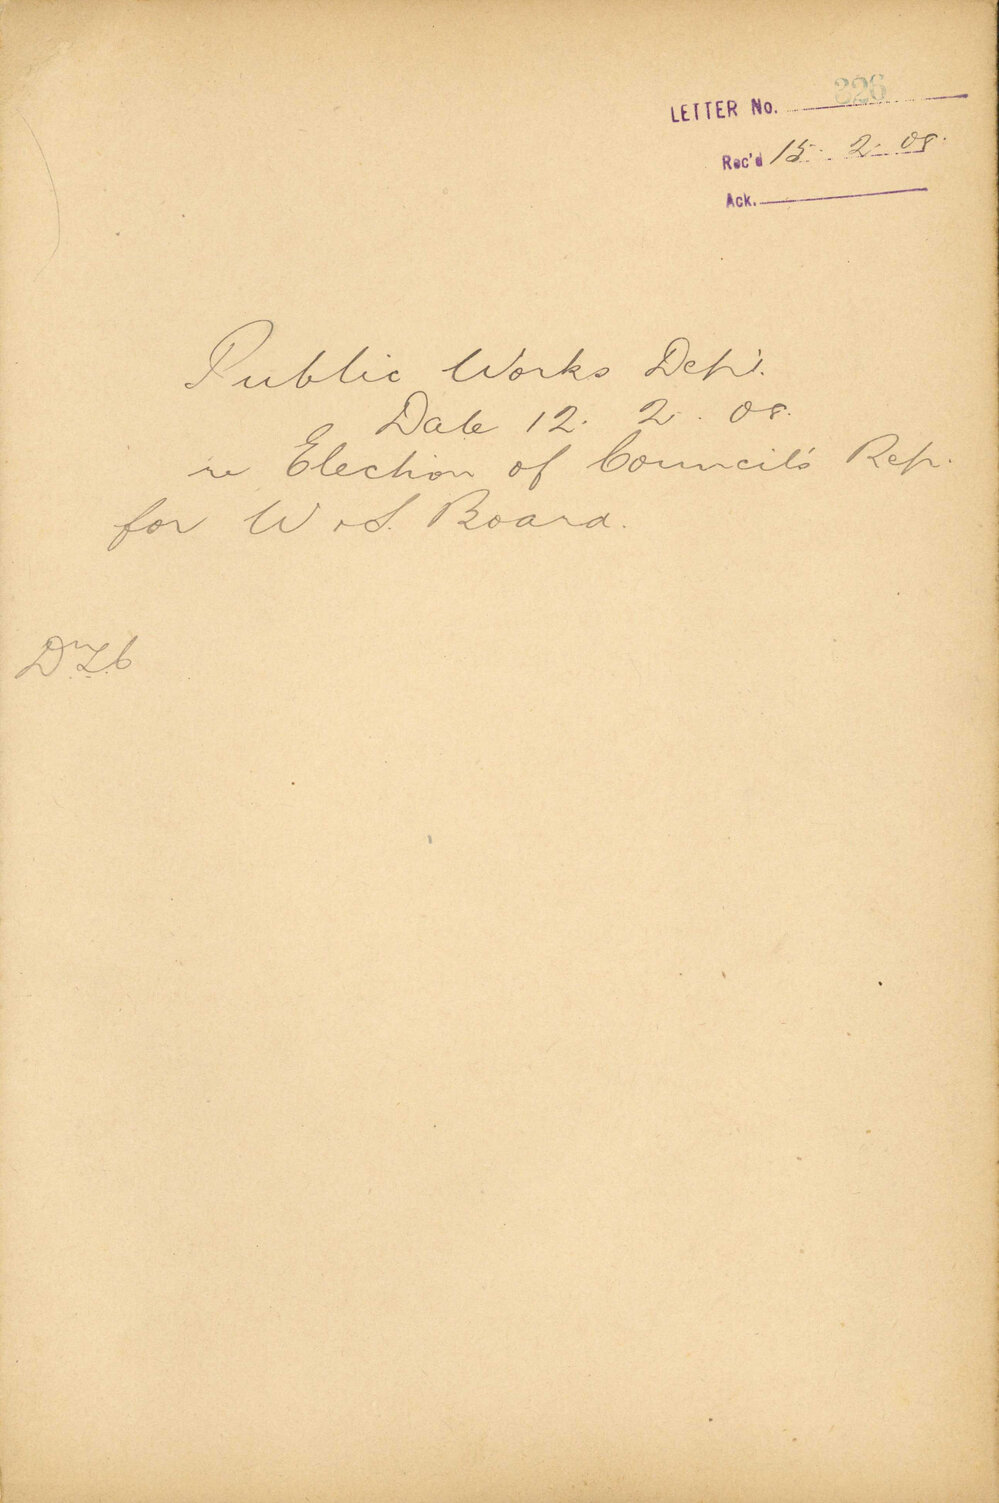 LETTER No. 326
Rec'd 15. 2. 08.
Ack.
Public Works Dep't.
Date 12. 2. 08.
re Election of Council's Rep.
for W & S. Board.